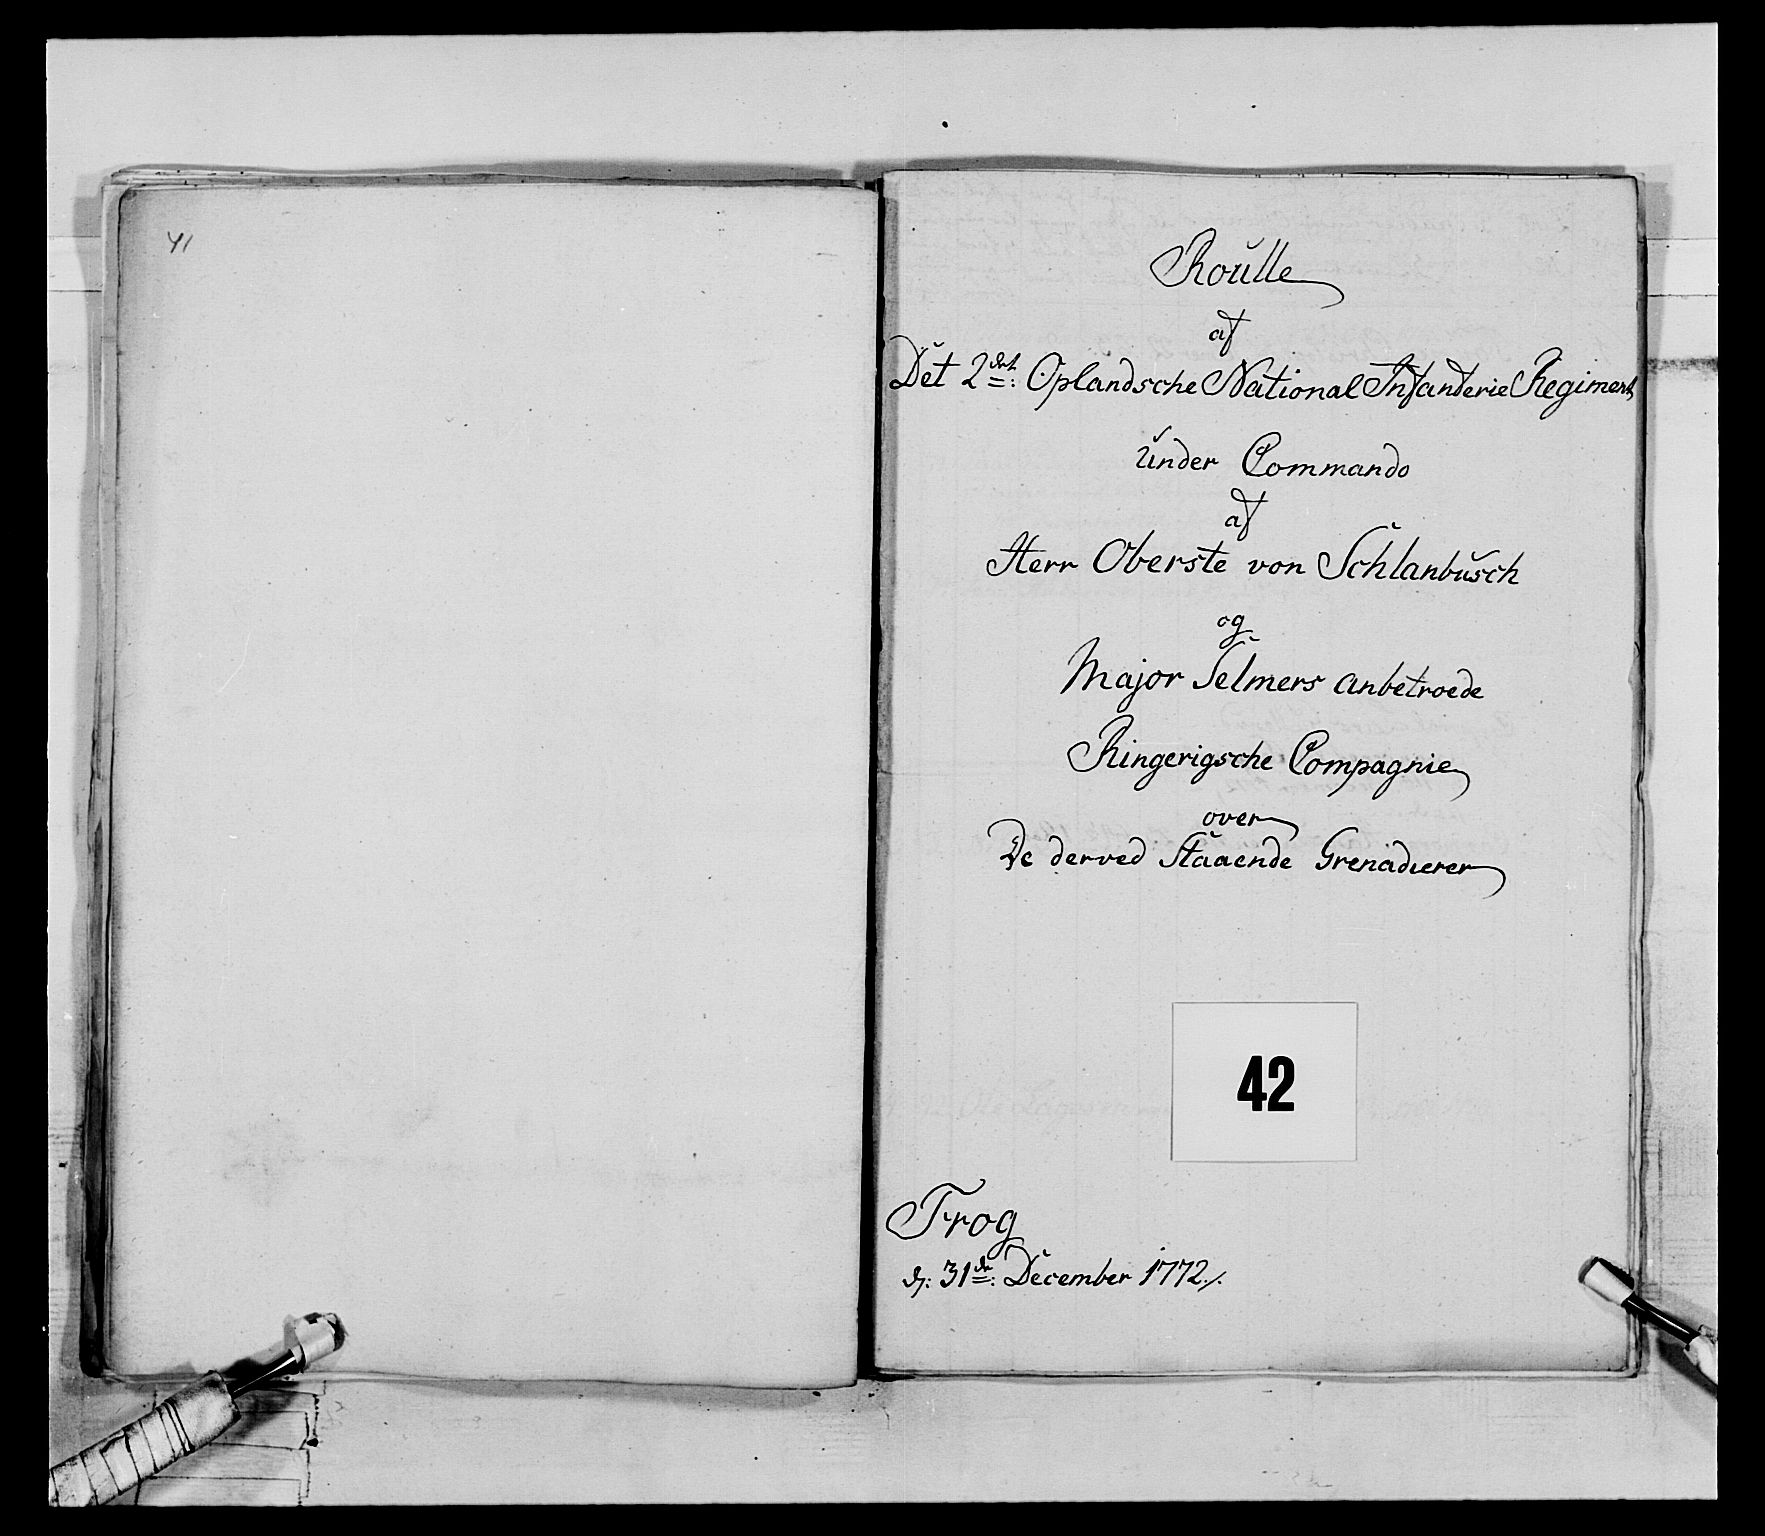 41
Roulle
af
Det 2det: Oplandsche National Infanterie Regiment
under Commando
af
Herr Oberste von Schlanbusch
og
Major Selmers anbetroede
Ringerigsche Compagnie
over
De derved Staaende Grenadierer
42
Frog
d: 31de: December 1772./.